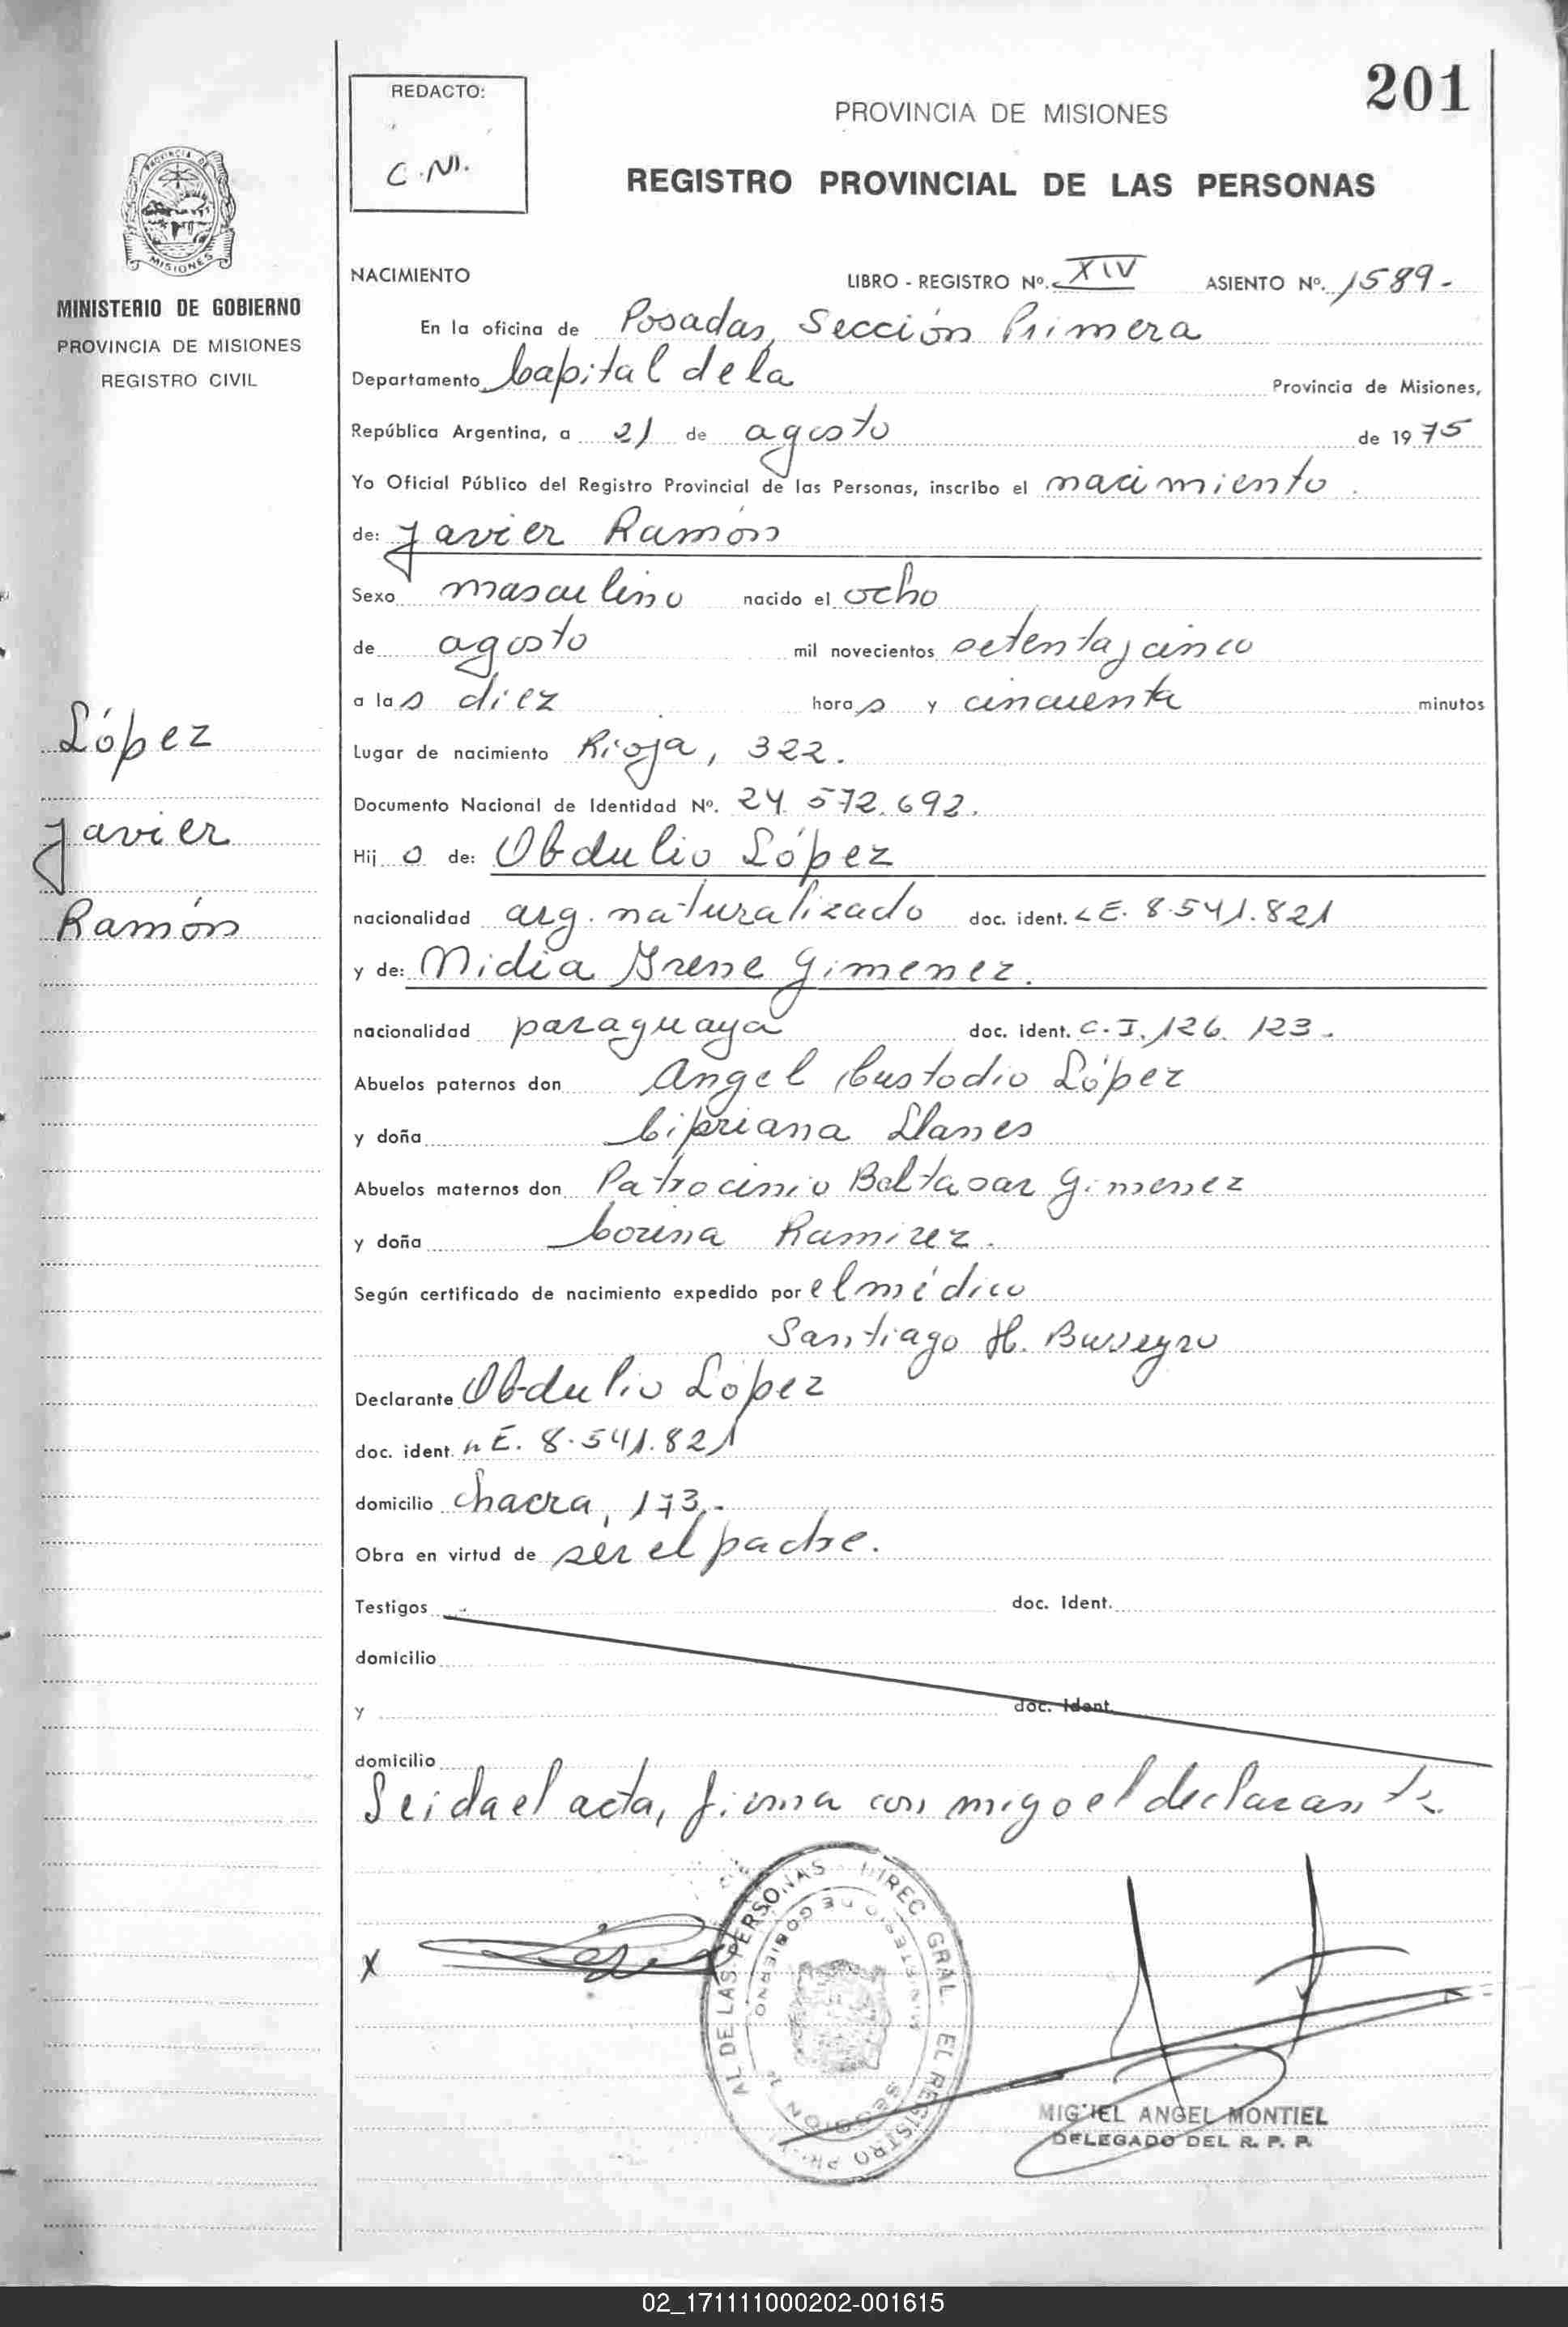 201
REDACTO:
C.N.
PROVINCIA DE MISIONES
REGISTRO PROVINCIAL DE LAS PERSONAS
PROVINCIA DE
MISIONES
MINISTERIO DE GOBIERNO
PROVINCIA DE MISIONES
REGISTRO CIVIL
López
Javier
Ramón
NACIMIENTO LIBRO - REGISTRO Nº. XIV ASIENTO Nº. 1589-
En la oficina de Posadas, Sección Primera
Departamento Capital de la Provincia de Misiones,
República Argentina, a 21 de agosto de 1975
Yo Oficial Público del Registro Provincial de las Personas, inscribo el nacimiento
de: Javier Ramón
Sexo masculino nacido el ocho
de agosto mil novecientos setenta y cinco
a las diez horas y cincuenta minutos
Lugar de nacimiento Rioja, 322.
Documento Nacional de Identidad Nº. 24.572.692.
Hijo de: Obdulio López
nacionalidad arg. naturalizado doc. ident. L E. 8.541.821
y de: Nidia Irene Gimenez.
nacionalidad paraguaya doc. ident. C. I. 126.123.
Abuelos paternos don Angel Custodio López
y doña Cipriana Llanes
Abuelos maternos don Patrocinio Baltasar Gimenez
y doña Corina Ramirez.
Según certificado de nacimiento expedido por el médico
Santiago H. Busseyro
Declarante Obdulio López
doc. ident. L E. 8.541.821
domicilio Chacra, 173.-
Obra en virtud de ser el padre.
Testigos doc. Ident.
domicilio
y doc. Ident.
domicilio
Leida el acta, firma con migo el declarante.
X
DIREC. GRAL. EL REGISTRO DE LAS PERSONAS
MINISTERIO DE GOBIERNO
SECCION 1ª
MIGUEL ANGEL MONTIEL
DELEGADO DEL R. P. P.
02_171111000202-001615